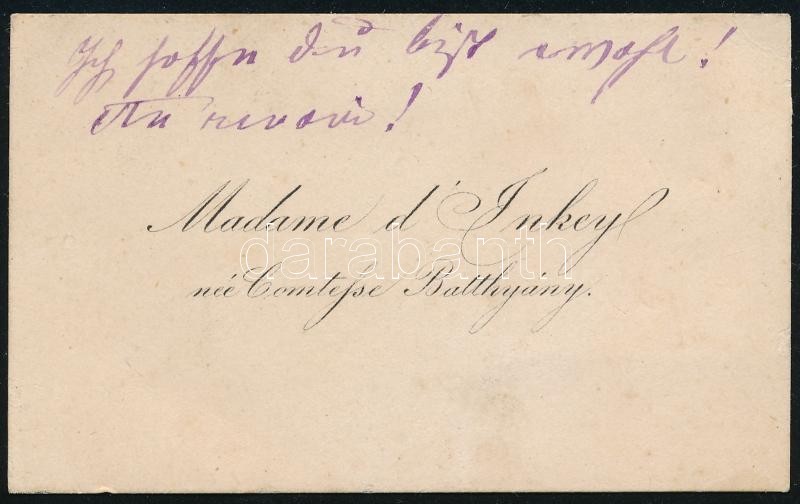 Ich hoffe du bist wohl!
Au revoir!
Madame d'Inkey
née Comtesse Batthyány.
darabanth